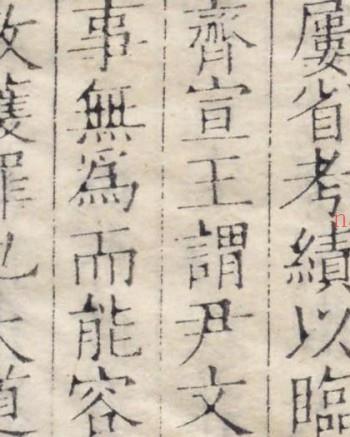 屢省考績以臨
齊宣王謂尹文
事無為而能容
故獲罪也大道